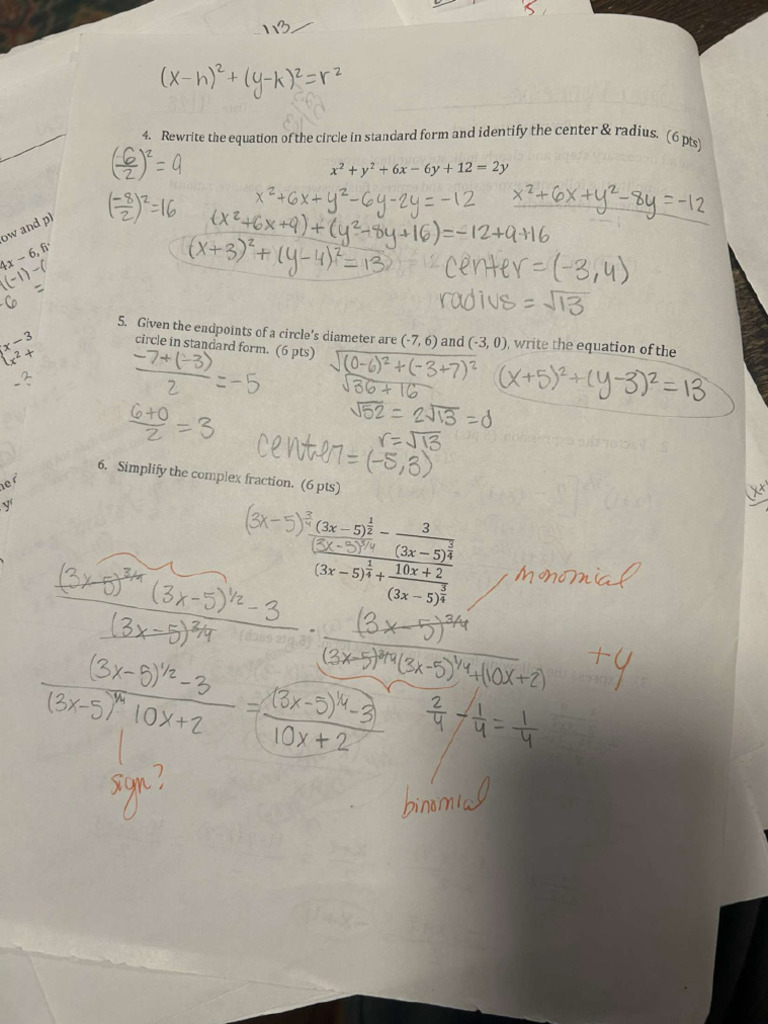 113
5.
(x-h)² + (y-k)² = r²
4. Rewrite the equation of the circle in standard form and identify the center & radius. (6 pts)
(-6/2)² = 9
x² + y² + 6x − 6y + 12 = 2y
(-8/2)² = 16
x² + 6x + y² - 6y - 2y = -12
x² + 6x + y² - 8y = -12
(x² + 6x + 9) + (y² - 8y + 16) = -12 + 9 + 16
(x+3)² + (y-4)² = 13
center = (-3, 4)
radius = √13
5. Given the endpoints of a circle's diameter are (-7, 6) and (-3, 0), write the equation of the
circle in standard form. (6 pts)
(-7 + (-3))/2 = -5
√(0-6)² + (-3+7)²
√36 + 16
√52 = 2√13 = d
r = √13
(x+5)² + (y-3)² = 13
(6+0)/2 = 3
center = (-5, 3)
6. Simplify the complex fraction. (6 pts)
(3x-5)^3/4
(3x − 5)^1/2 − 3/(3x − 5)^3/4
(3x-5)^3/4
(3x − 5)^1/4 + (10x + 2)/(3x − 5)^3/4
monomial
(3x-5)^3/4 (3x-5)^1/2 - 3 / (3x-5)^3/4 · (3x-5)^3/4 / (3x-5)^3/4 (3x-5)^1/4 + (10x+2)
+4
(3x-5)^1/2 - 3 / (3x-5)^1/4 10x+2 = (3x-5)^1/4 - 3 / 10x+2
2/4 - 1/4 = 1/4
sign?
binomial
ow and pl
4x − 6, fi